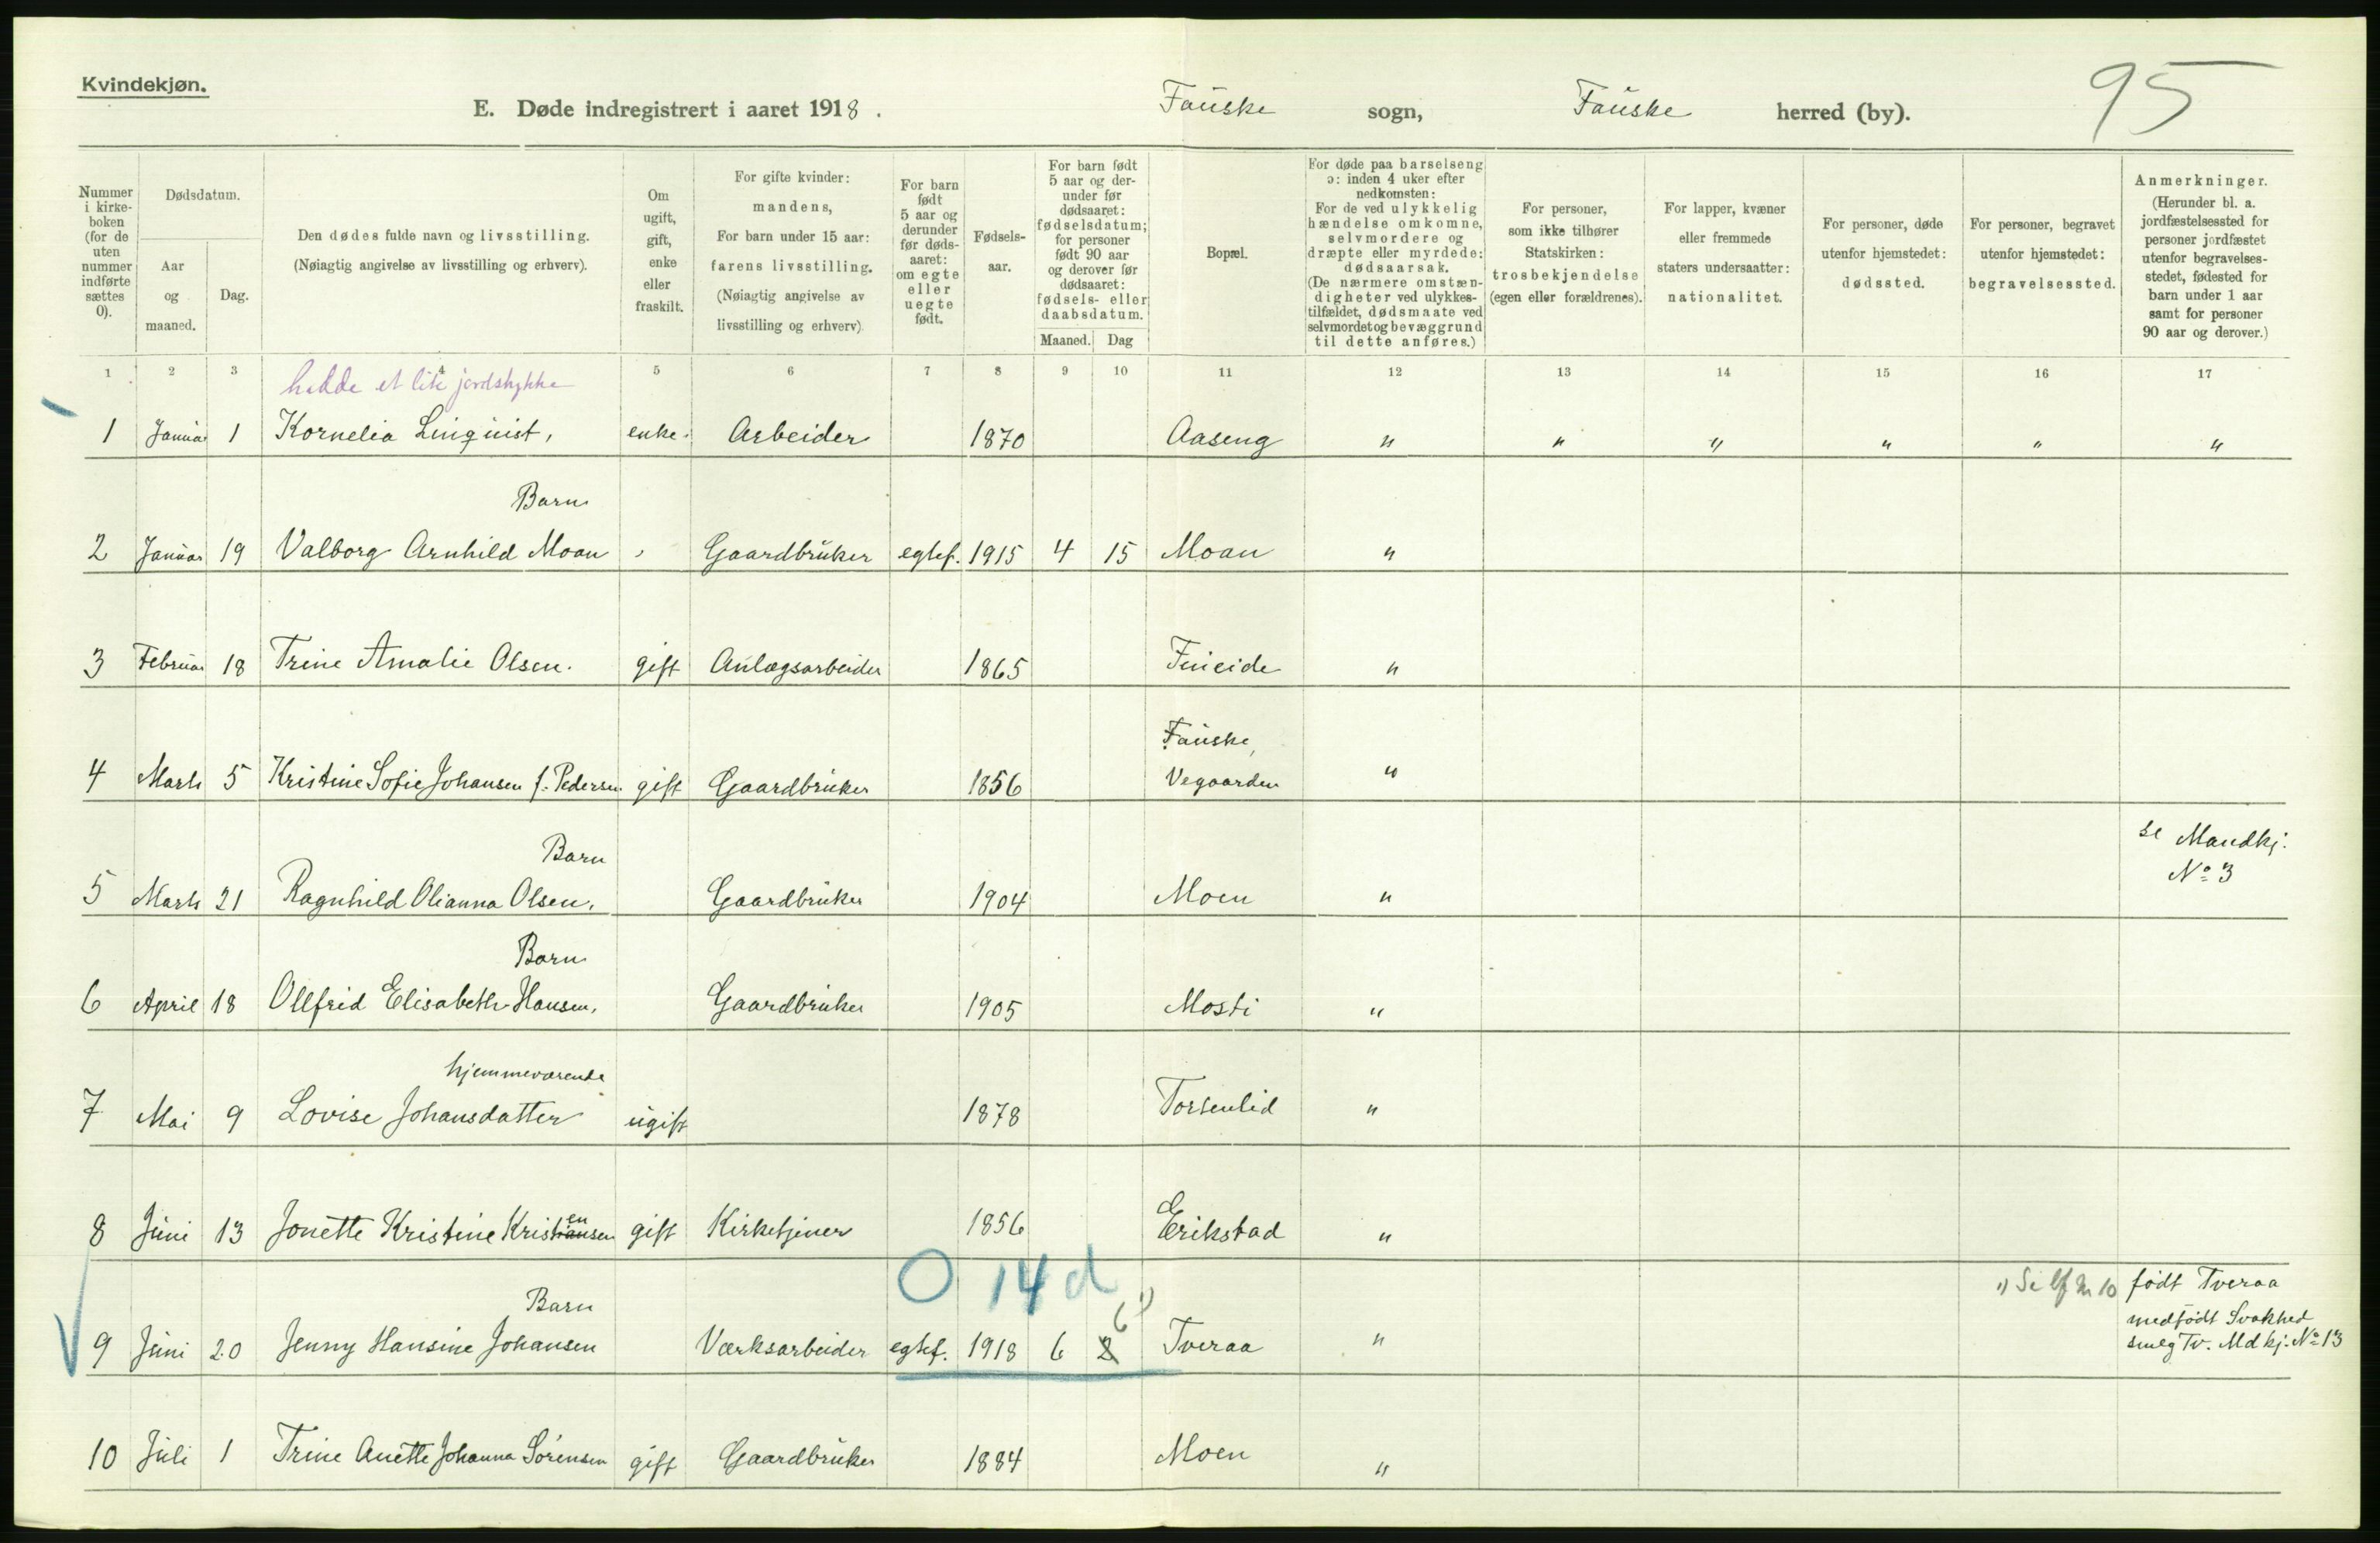 Kvindekjøn.
E. Døde indregistrert i aaret 1918. Fauske sogn, Fauske herred (by). 95
Nummer i kirkeboken (for de uten nummer indførte sættes 0).
Dødsdatum.
Aar og maaned.
Dag.
Den dødes fulde navn og livsstilling.
(Nøiagtig angivelse av livsstilling og erhverv).
Om ugift, gift, enke eller fraskilt.
For gifte kvinder: mandens,
For barn under 15 aar: farens livsstilling.
(Nøiagtig angivelse av livsstilling og erhverv).
For barn født 5 aar og derunder før dødsaaret: om egte eller uegte født.
Fødselsaar.
For barn født 5 aar og derunder før dødsaaret: fødselsdatum; for personer født 90 aar og derover før dødsaaret: fødsels- eller daabsdatum.
Maaned. Dag
Bopæl.
For døde paa barselseng ɔ: inden 4 uker efter nedkomsten:
For de ved ulykkelig hændelse omkomne, selvmordere og dræpte eller myrdede: dødsaarsak.
(De nærmere omstændigheter ved ulykkestilfældet, dødsmaate ved selvmordet og bevæggrund til dette anføres.)
For personer, som ikke tilhører Statskirken: trosbekjendelse (egen eller forældrenes).
For lapper, kvæner eller fremmede staters undersaatter: nationalitet.
For personer, døde utenfor hjemstedet: dødssted.
For personer, begravet utenfor hjemstedet: begravelsessted.
Anmerkninger.
(Herunder bl. a. jordfæstelsessted for personer jordfæstet utenfor begravelsesstedet, fødested for barn under 1 aar samt for personer 90 aar og derover.)
1 2 3 4 5 6 7 8 9 10 11 12 13 14 15 16 17
hadde et lite jordstykke
1 Januar 1 Kornelia Linquist, enke. Arbeider 1870 Aaseng " " " " " "
Barn
2 Januar 19 Valborg Arnhild Moan , Gaardbruker egtef. 1915 4 15 Moan "
3 Februar 18 Trine Amalie Olsen. gift Anlægsarbeider 1865 Fineide "
Fauske,
4 Marts 5 Kristine Sofie Johansen f. Pedersen gift Gaardbruker 1856 Vegaarden "
Barn se Mandkj.
5 Marts 21 Ragnhild Olianna Olsen, Gaardbruker 1904 Moen " No 3
Barn
6 April 18 Ollfrid Elisabeth Hansen, Gaardbruker 1905 Mosti "
hjemmeværende
7 Mai 9 Lovise Johansdatter ugift 1878 Torsenlid "
en
8 Juni 13 Jonette Kristine Kristiansen gift Kirketjener 1856 Erikstad "
O 14 d
Barn 6 1) 1) født Tveraa
medfødt Svakhed
9 Juni 20 Jenny Hansine Johansen Værksarbeider egtef. 1918 6 2 Tveraa " Tv. Mdkj. No 13
10 Juli 1 Trine Anette Johanna Sørensen gift Gaardbruker 1884 Moen "